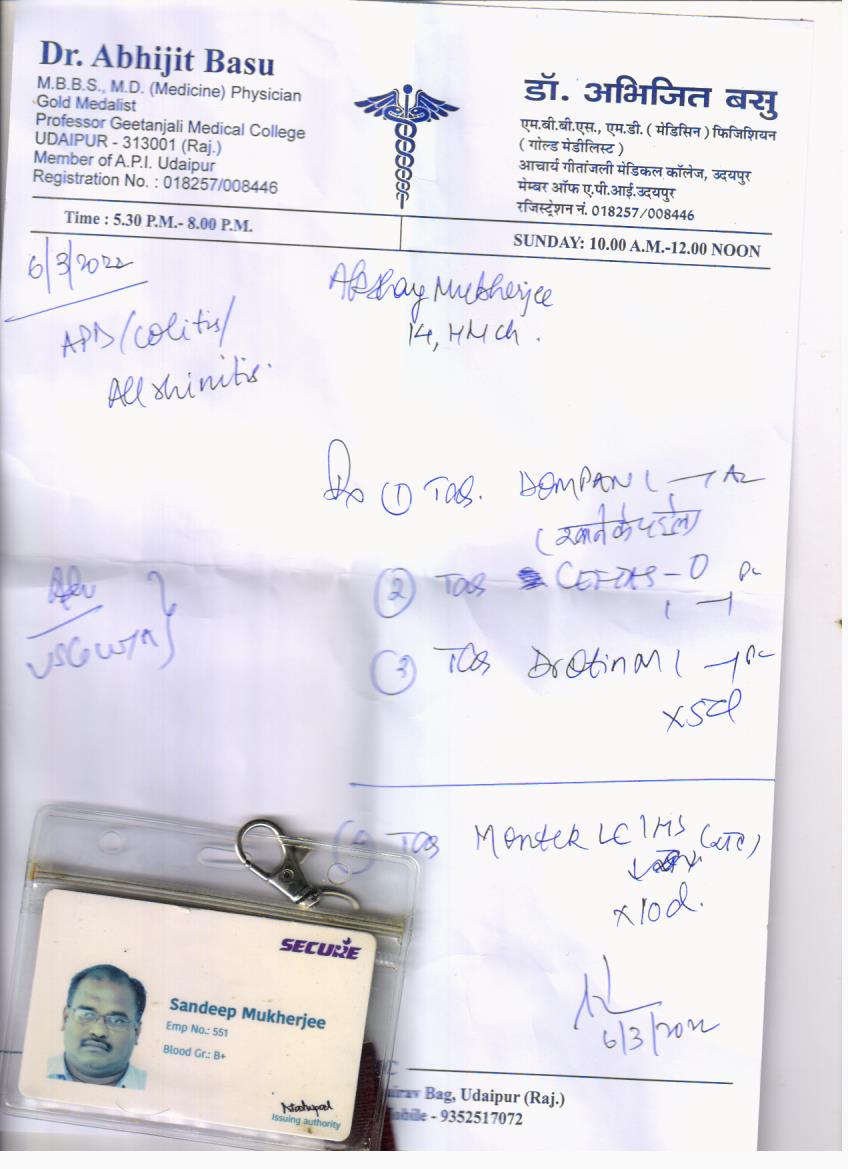 Dr. Abhijit Basu
M.B.B.S., M.D. (Medicine) Physician
Gold Medalist
Professor Geetanjali Medical College
UDAIPUR - 313001 (Raj.)
Member of A.P.I. Udaipur
Registration No. : 018257/008446
डॉ. अभिजित बसु
एम.बी.बी.एस., एम.डी. ( मेडिसिन ) फिजिशियन
( गोल्ड मेडीलिस्ट )
आचार्य गीतांजली मेडिकल कॉलेज, उदयपुर
मेम्बर ऑफ ए.पी.आई.उदयपुर
रजिस्ट्रेशन नं. 018257/008446
Time : 5.30 P.M.- 8.00 P.M.
SUNDAY: 10.00 A.M.-12.00 NOON
6/3/2022
Mukherjee
14, M ch.
APD/Colitis/
All rhinitis.
Rx (1) Tab. DOMPAN 1
(खाने के पहले)
(2) Tab - O
USG W/A
(3) Tab Drotin M 1
x5d
Tab Montek LC
x10d.
6/3/2022
SECURE
Sandeep Mukherjee
Emp No.: 551
Blood Gr.: B+
Issuing authority
Bag, Udaipur (Raj.)
- 9352517072